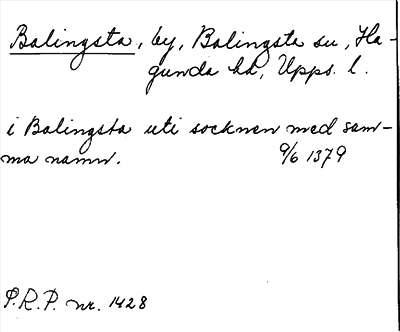 Balingsta, by, Balingsta sn, Ha-
gunda hd, Upps. l.
i Balingsta uti socknen med sam-
ma namn. 9/6 1379
P.R.P. nr. 1428